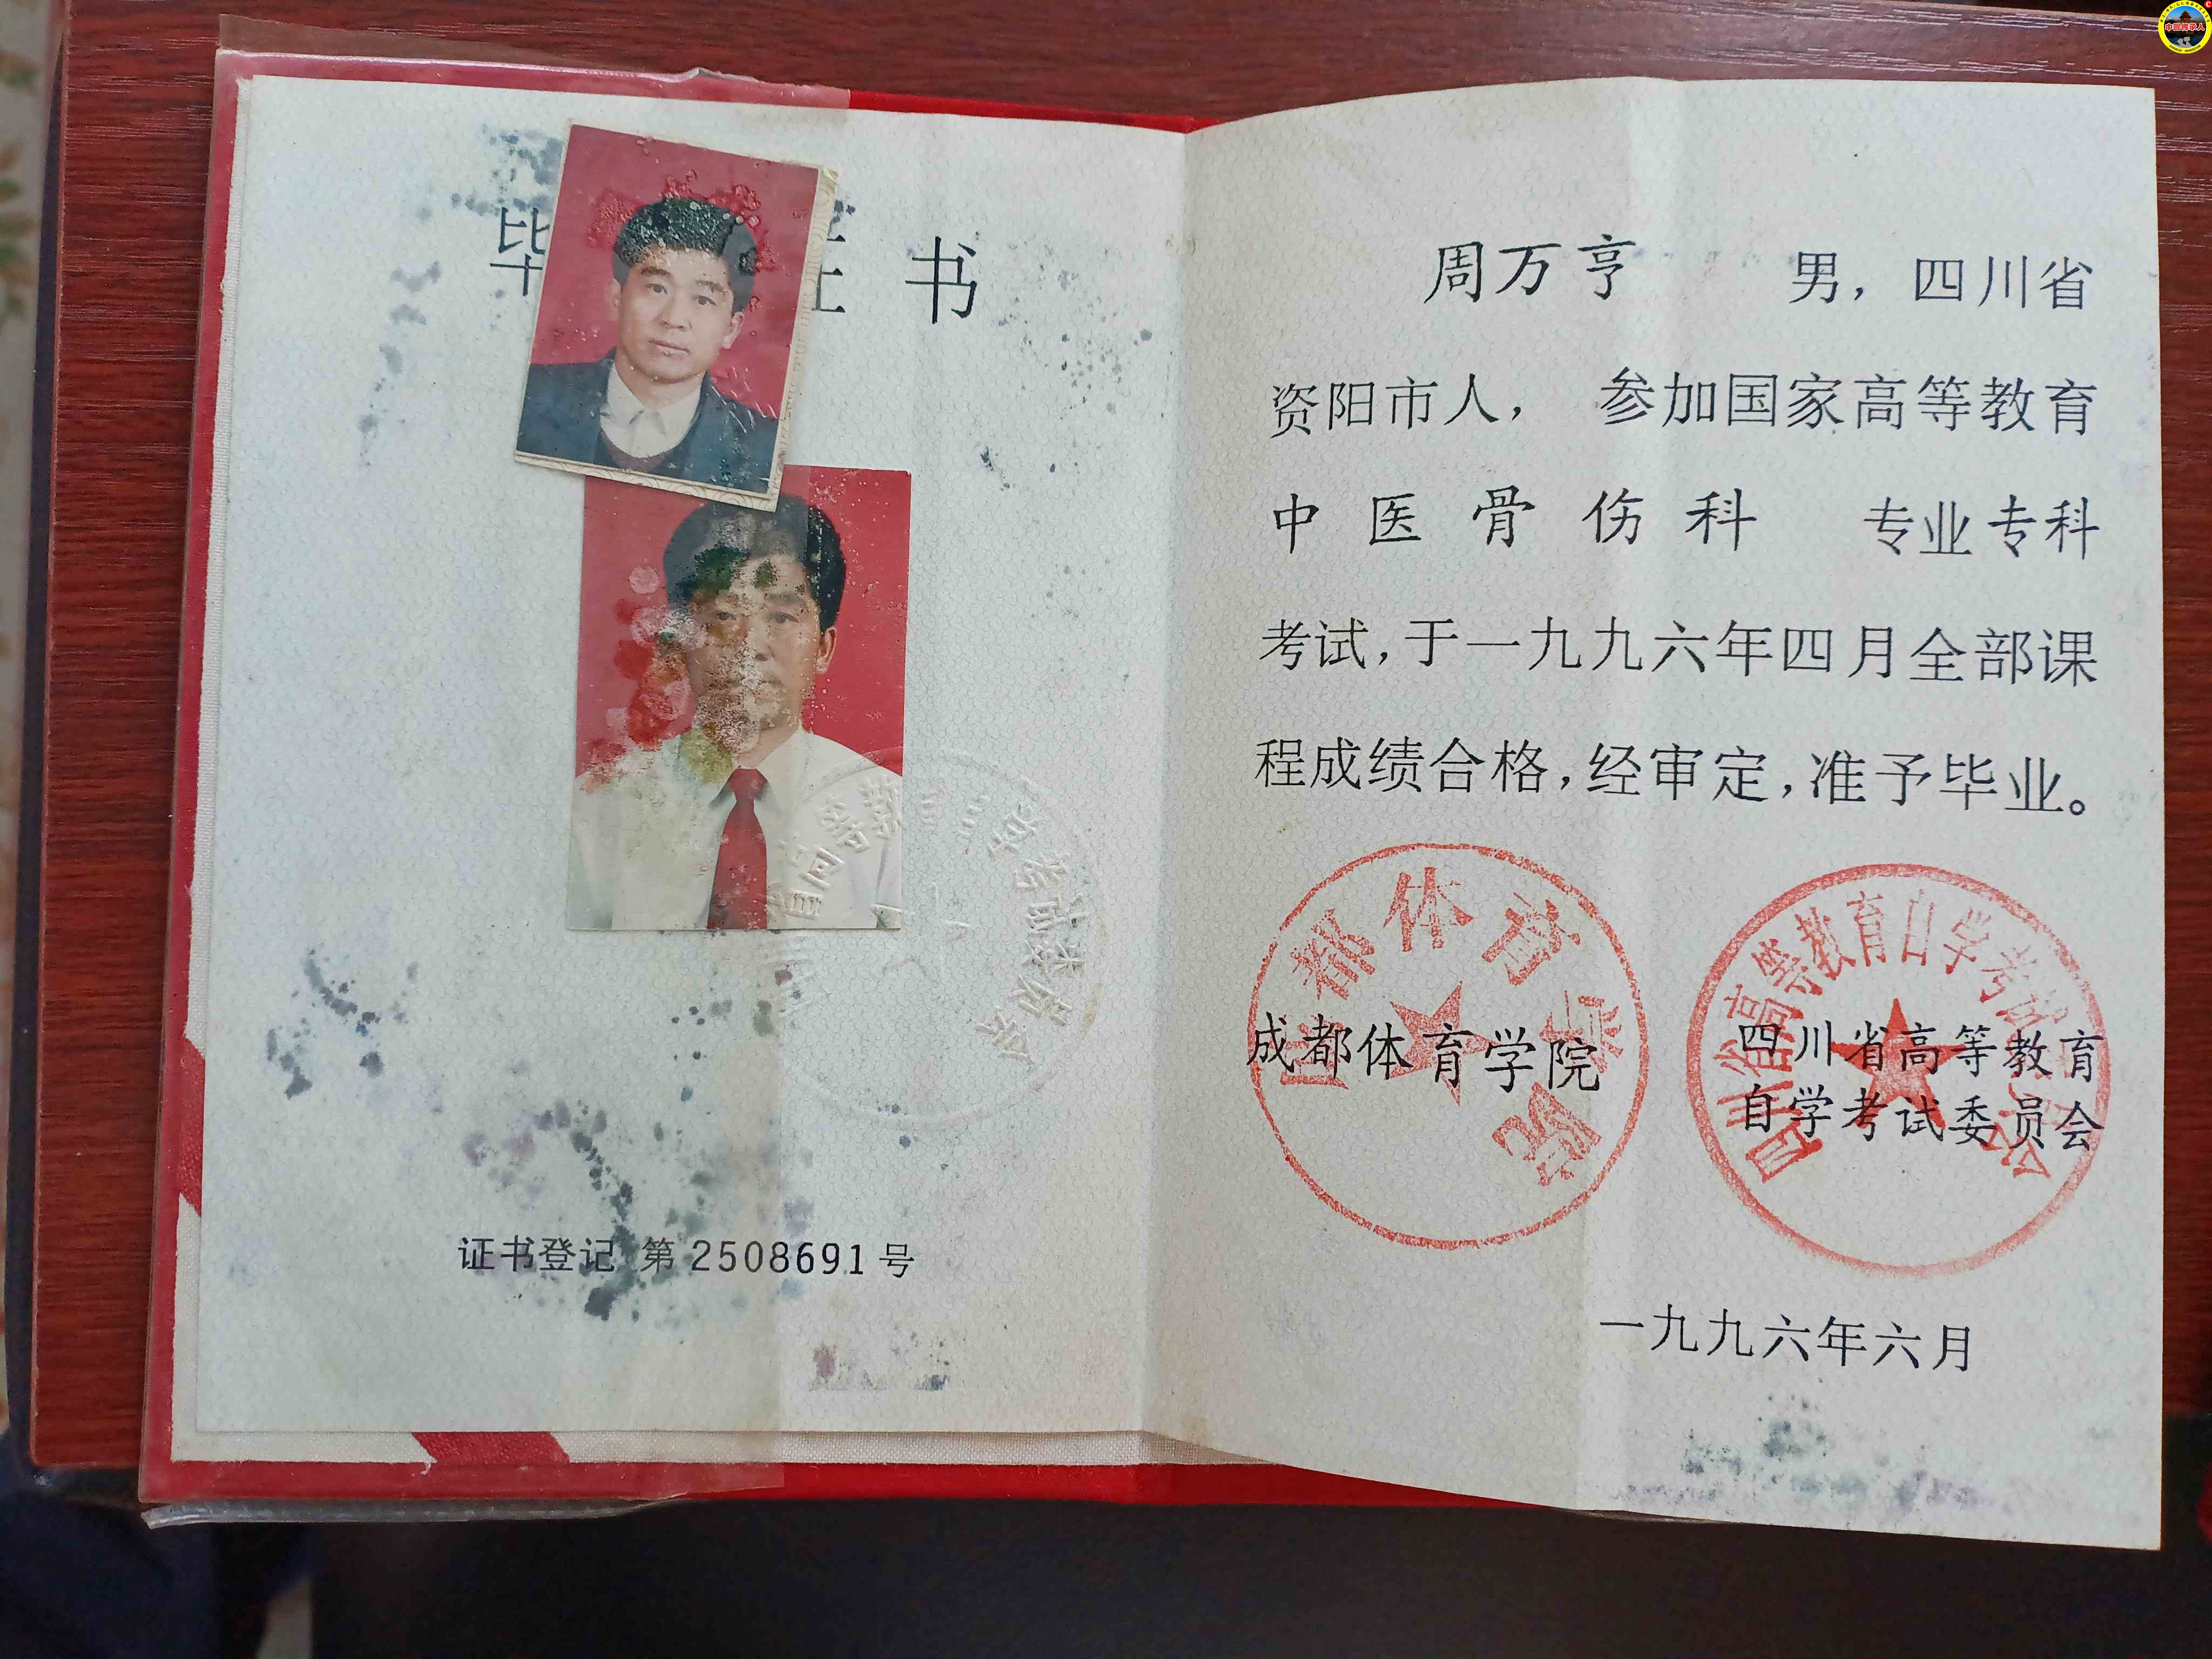 毕 证 书
证书登记 第 2508691 号
周万亨 男，四川省
资阳市人， 参加国家高等教育
中医骨伤科 专业专科
考试，于一九九六年四月全部课
程成绩合格，经审定，准予毕业。
成都体育学院
四川省高等教育
自学考试委员会
都体育学院
四川省高等教育自学考试委员会
一九九六年六月